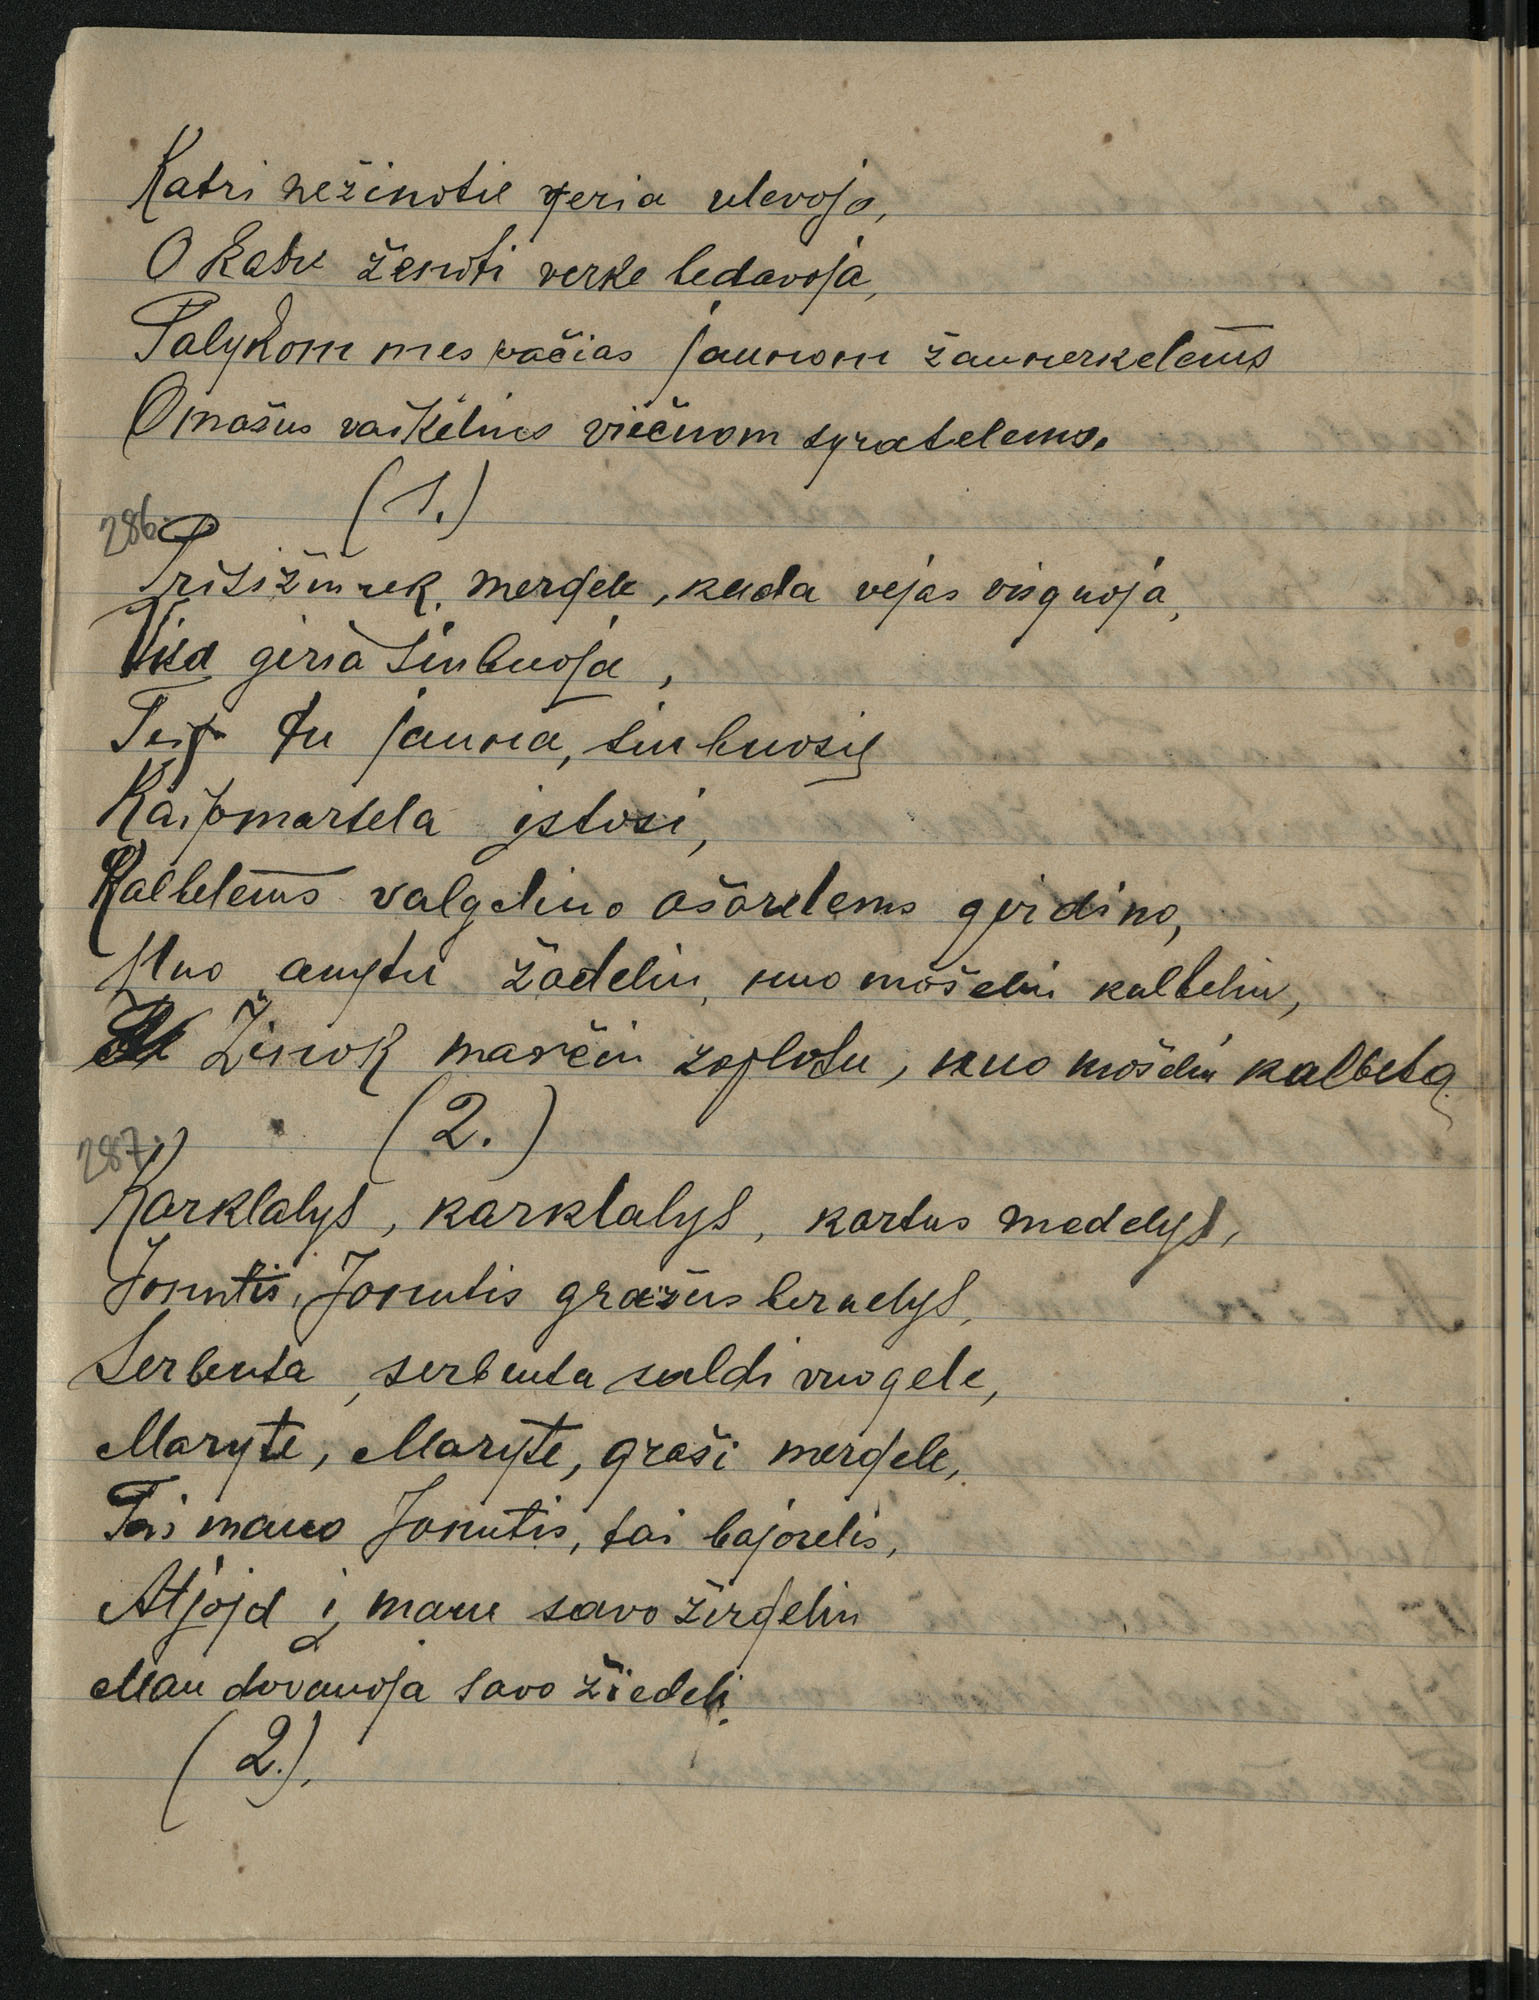 Katri nežinotie geria ulevoja,
O katri ženoti verke bedavoja,
Palykom mes pačias jaunom žaunerkelems
O mašus vaikelius viečnom syratelems.
(1.)
286.
Prisižiurek, mergele, kada vejas visguoja,
Visa giria siubuoja,
Teip tu jauna, siubuosį
Kaip martela įstosi,
Kalbelems valgdino ašarelems girdino,
Nuo anytu žodeliu, nuo mošeliu kalbeliu,
Žinok marčiu zoplotu, nuo mošeliu kalbeta.
(2.)
287.
Karklalys, karklalys, kartus medelys,
Jonutis, Jonutis gražus bernelys,
Serbenta, serbenta saldi vuogele,
Maryte, Maryte, graži mergele,
Tai mano Jonutis, tai bajorelis,
Atjoja į mane savo žirgeliu
Man dovanoja savo žiedeli.
(2.),